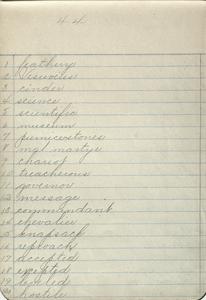 44
1 feathery
2 Vesuvius
3 cinder
4 science
5 scientific
6 museum
7 pumicestones
8 martyr
9 chariot
10 treacherous
11 governor
12 message
13 commandant
14 chevalier
15 knapsack
16 reproach
17 accepted
18 excepted
19 exiled
20 hostile